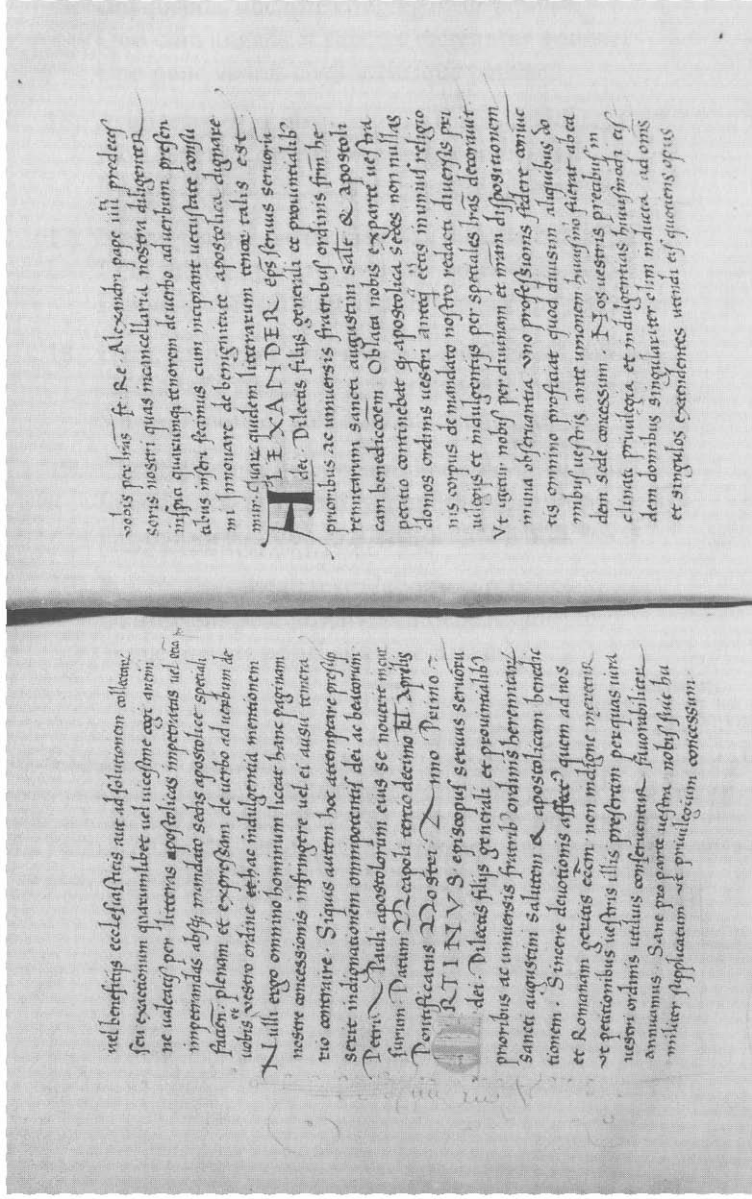 vel beneficijs ecclesiasticis aut ad solutionem collectarum
seu exactionum quarumlibet vel vicesime cogi anięm
ne valeatis per litteras apostolicas impetratas vel etiã
impetrandas absq; mandato sedis apostolice speciali
facien. plenam et expressam de verbo ad verbum de
vobis vestro ordine et hac indulgentia mentionem
Nulli ergo omnino hominum liceat hanc paginam
nostre concessionis infringere vel ei ausu temera
rio contraire. Siquis autem hoc attemptare presūp
serit indignationem omnipotentis dei ac beatorum
Petri & Pauli apostolorum eius se noverit incur
surum. Datum Neapoli tercio decimo kl Aprilis
Pontificatus Nostri Anno Primo
RTINVS episcopus servus servorū
dei. Dilectis filijs generali et provintialib9
prioribus ac universis fratrib9 ordinis heremitarꝫ
sancti augustini salutem & apostolicam benedic
tionem. Sincere devotionis affect9 quem ad nos
et Romanam geritis ecc̄m non indigne meretur
ut petitionibus vestris illis presertim per quas iura
vestri ordinis utilius conserventur favorabiliter
annuamus. Sane pro parte vestra nobis fuit hu
militer supplicatum ut privilegium concessum.
vobis per lr̄as fe. Re. Alexandri pape iiij predeces
soris nostri quas in cancellaria nostra diligenter
inspici quarumq; tenorem de verbo ad verbum presen
tibus inseri fecimus cum incipiant vetustate consu
mi Innovare de benignitate apostolica dignare
mur. Quarꝫ quidem litterarum tenor talis est.
ALEXANDER ep̄s servus servorū
dei. Dilectis filijs generali et provintialib9
prioribus ac universis fratribus ordinis frm̄ he
remitarum sancti augustini salt̄ & apostoli
cam benedicc̄oem. Oblata nobis ex parte vestra
petitio continebat q apostolica sedes non nullas
domos ordinis vestri anteq̄ ec̄tis in unius religio
nis corpus de mandato nostro redacti diversis pri
vilegijs et indulgentijs per speciales lr̄as decoravit
Ut igitur nobis per divinam et nr̄am dispositionem
in una observantia uno professionis federe coniunc
tis omnino proficiat quod divisim aliquibus do
mibus vestris ante unionem huiusmo fuerat ab ea
dem sede concessum. Nos vestris precibus in
clinati privilegia et indulgentias huiusmodi eis
dem domibus singulariter olim inducta ad om̄s
et singulos extendentes utendi eis quotiens opus